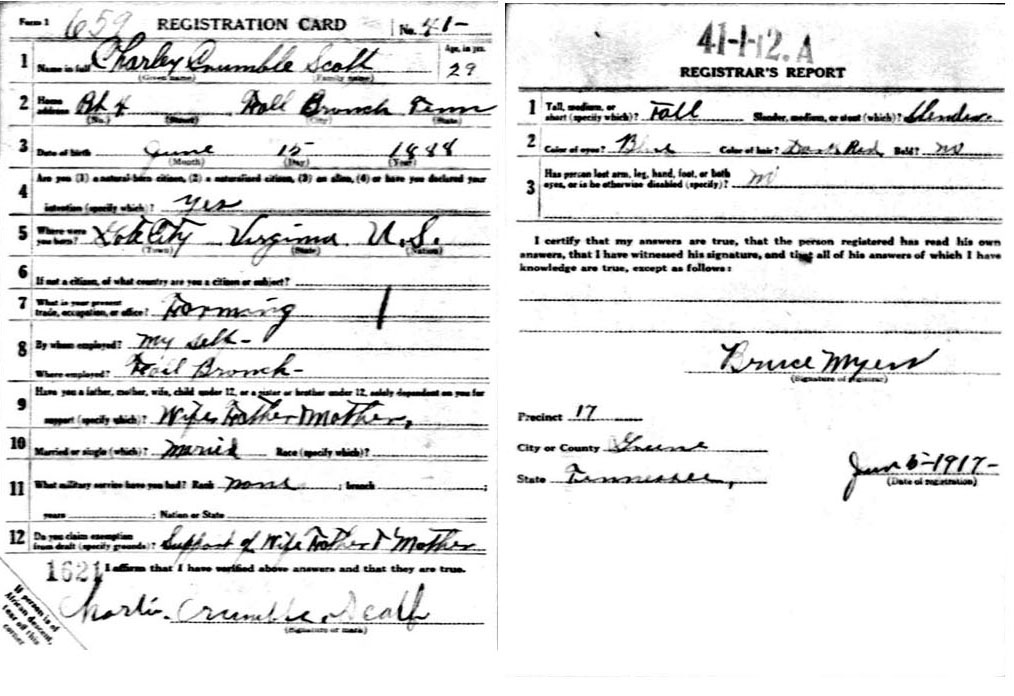 Form 1 659 REGISTRATION CARD No. 41-
1 Name in full Charley Crumble Scott Age, in yrs. 29
(Given name) (Family name)
2 Home address Rt 4 Fall Branch Tenn
(No.) (Street) (City) (State)
3 Date of birth June 15 1888
(Month) (Day) (Year)
4 Are you (1) a natural-born citizen, (2) a naturalized citizen, (3) an alien, (4) or have you declared your
intention (specify which)? yes
5 Where were you born? City Virginia U.S.
(Town) (State) (Nation)
6 If not a citizen, of what country are you a citizen or subject?
7 What is your present trade, occupation, or office? Farming
8 By whom employed? my self-
Where employed? Fall Branch-
9 Have you a father, mother, wife, child under 12, or a sister or brother under 12, solely dependent on you for
support (specify which)? Wife Father & Mother,
10 Married or single (which)? Maried Race (specify which)?
11 What military service have you had? Rank none ; branch ;
years ; Nation or State
12 Do you claim exemption from draft (specify grounds)? Support of Wife Father & Mother
1621 I affirm that I have verified above answers and that they are true.
Crumble Scalf
(Signature or mark)
If person is of
African descent,
tear off this
corner
41-1-12. A
REGISTRAR'S REPORT
1 Tall, medium, or short (specify which)? Tall Slender, medium, or stout (which)? Slender
2 Color of eyes? Blue Color of hair? Dark Red Bald? no
3 Has person lost arm, leg, hand, foot, or both eyes, or is he otherwise disabled (specify)?
I certify that my answers are true, that the person registered has read his own
answers, that I have witnessed his signature, and that all of his answers of which I have
knowledge are true, except as follows:
Bruce Myers
(Signature of registrar)
Precinct 17
City or County Greene
State Tennessee,
Jun 5-1917-
(Date of registration)